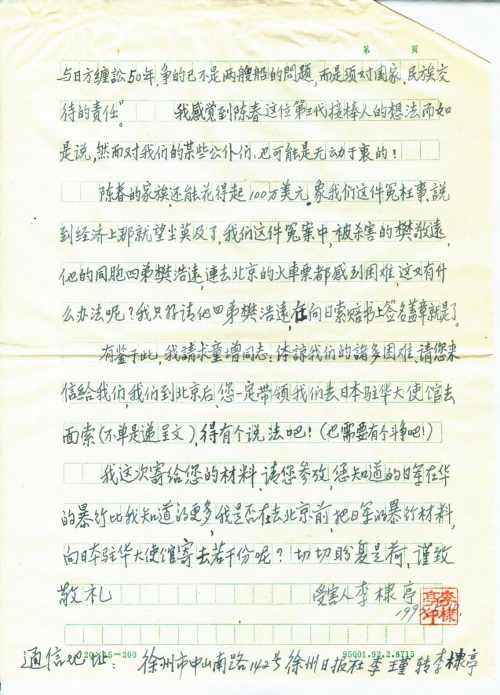 第 頁
与日方缠讼50年,争的已不是两艘船的問题,而是须对国家、民族交
待的责任”。 我感觉到陈春这位第三代接棒人的想法而如
是说,然而对我们的某些公仆们,也可能是无动于衷的!
陈春的家族还能花得起100万美元。象我们这件冤枉事、說
到经济上那就望尘莫及了,我们这件冤案中,被杀害的樊敬遠,
他的同胞四弟樊浩遠,連去北京的火車票都感到困难,这又有什
么办法呢?我只好请他四弟樊浩遠,在向日索赔书上签名蓋章就是了。
有鉴于此,我請求童增同志:体諒我们的諸多困难、请您来
信给我们,我们到北京后、您一定带領我们去日本驻华大使馆去
面索(不单是递呈文)、得有个说法吧!(也需要有个斗争吧!)
我这次寄给您的材料、请您参攷,您知道的日军在华
的暴行比我知道的更多,我是否在去北京前,把日军的暴行材料,
向日本驻华大使馆寄去若干份呢?切切盼复是荷,谨致
敬礼 受害人李棣亭
199
20×15=300 95Q01.92.2.8715
通信地址:徐州市中山南路142号徐州日报社李瑾转李棣亭